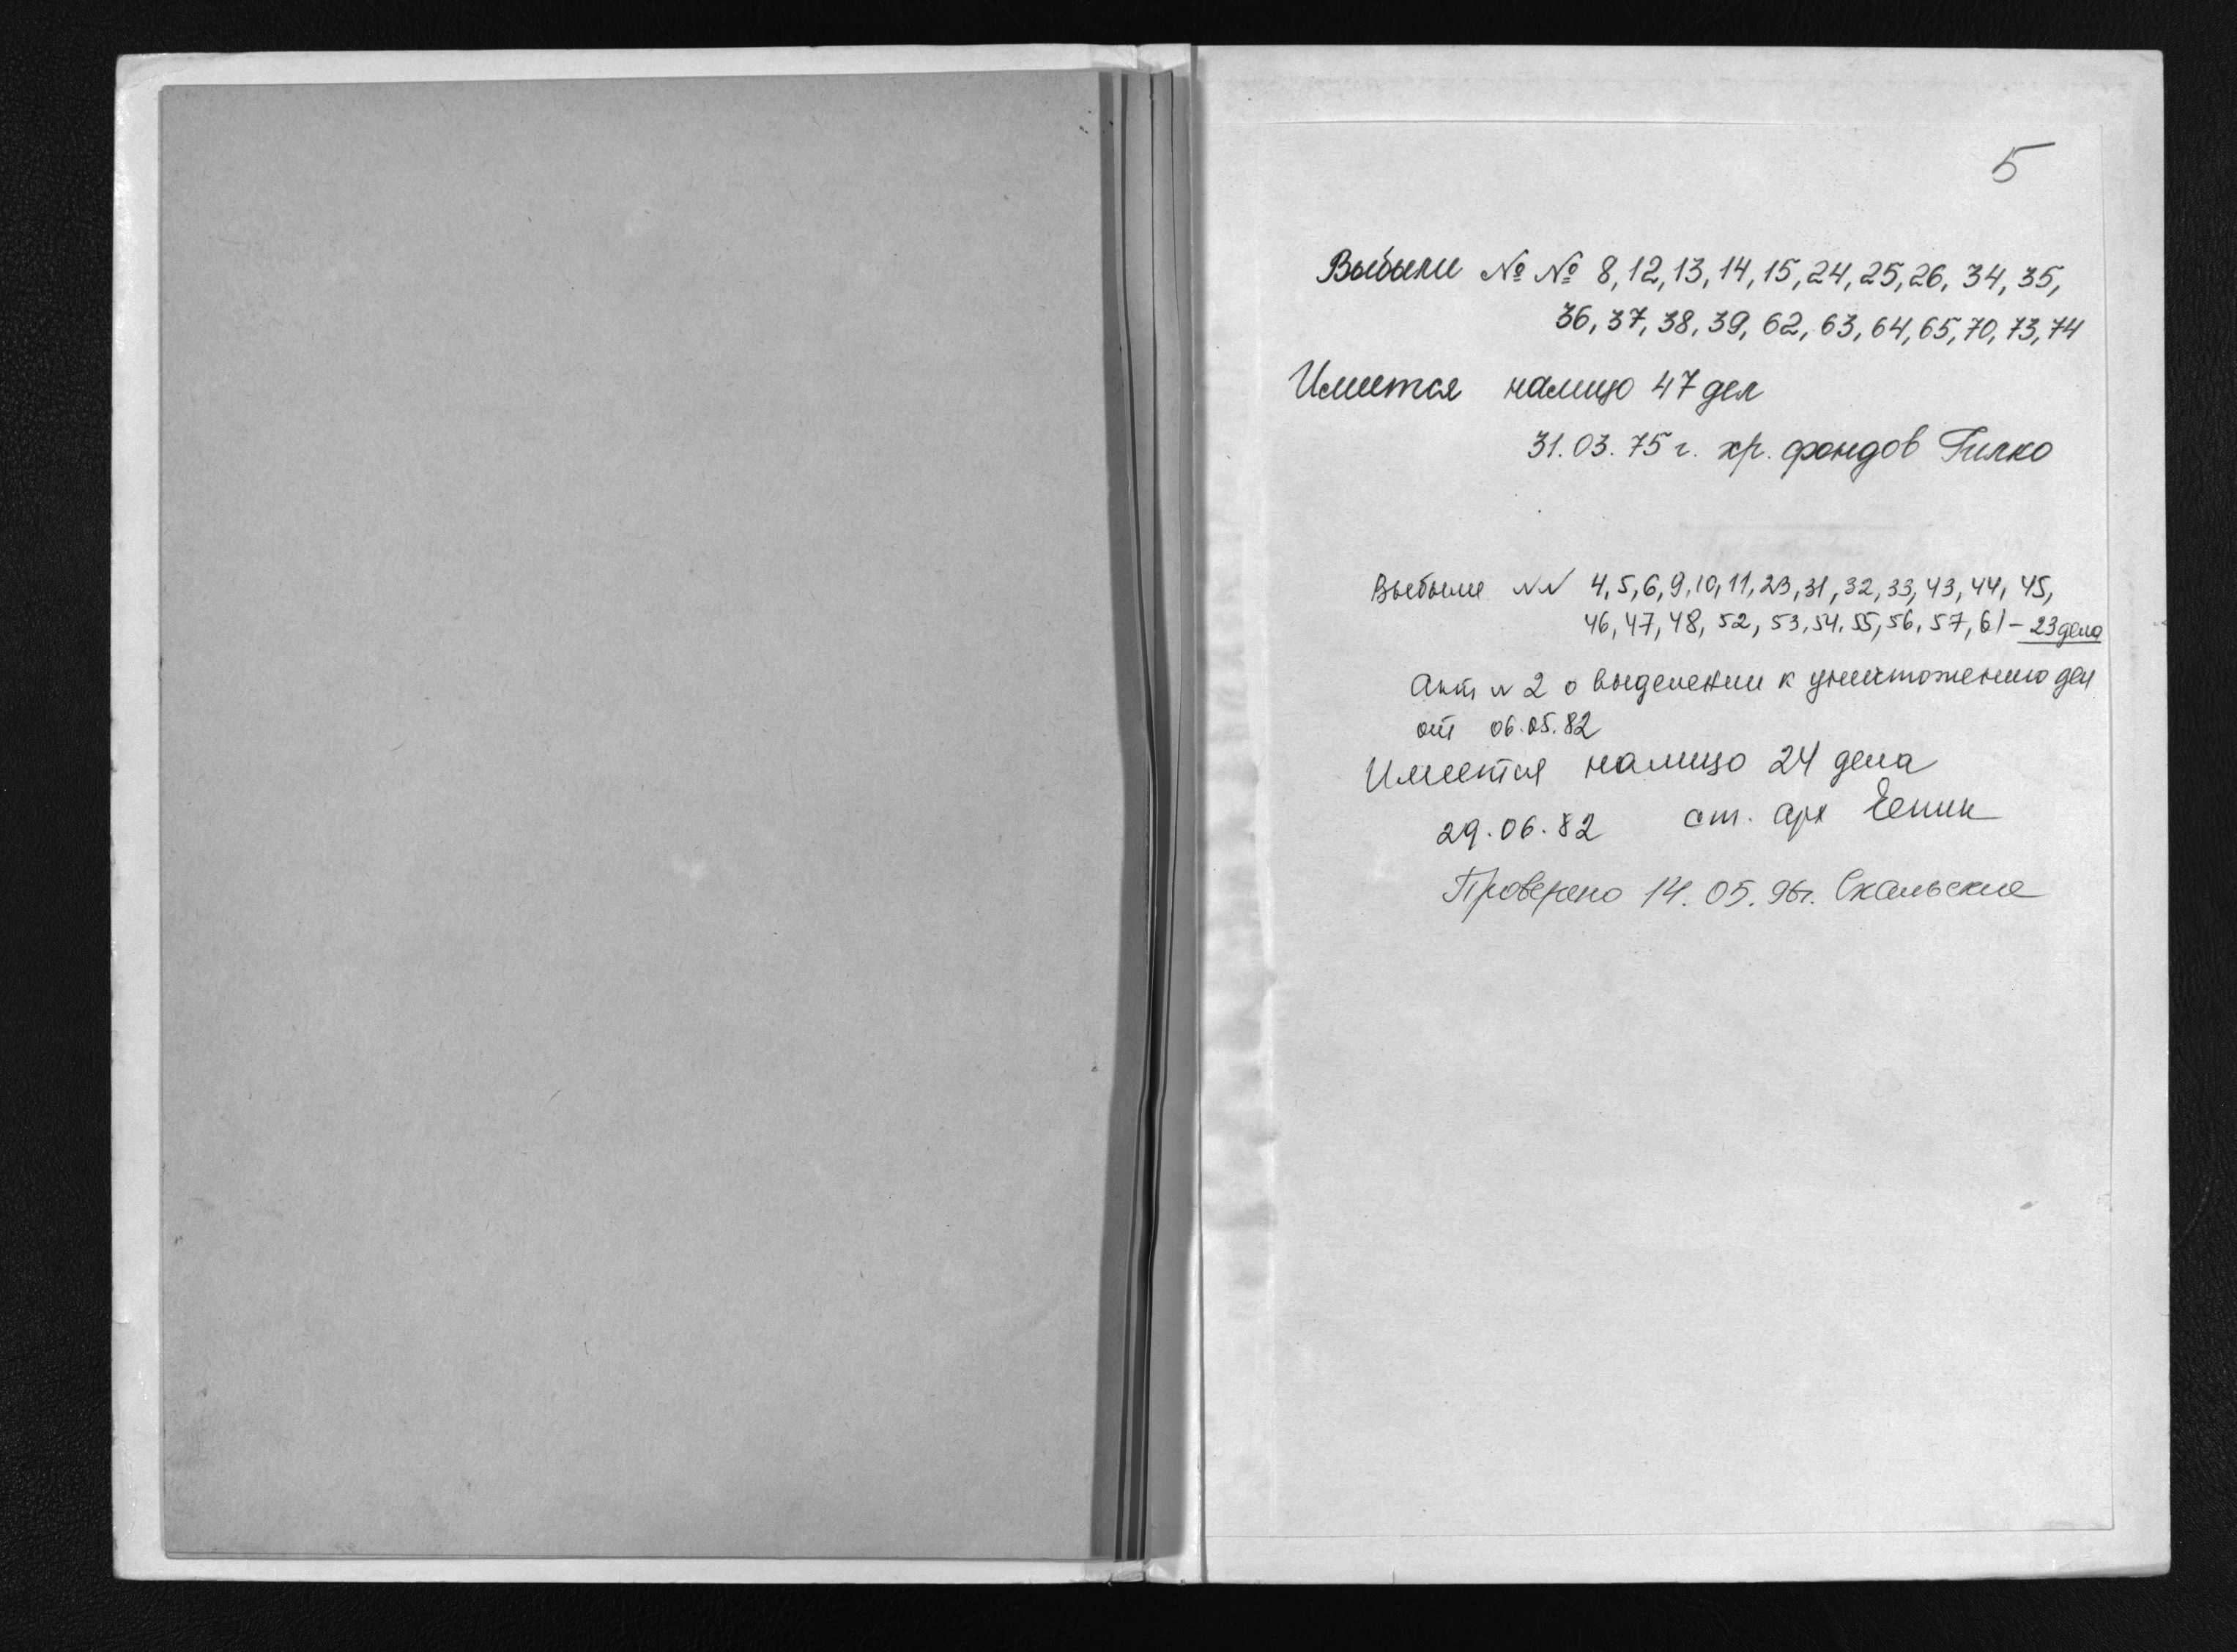 5
Выбыли №№ 8, 12, 13, 14, 15, 24, 25, 26, 34, 35,
36, 37, 38, 39, 62, 63, 64, 65, 70, 73, 74
Имеется налицо 47 дел
31.03.75 г. хр. фондов Гилко
Выбыли NN 4, 5, 6, 9, 10, 11, 23, 31, 32, 33, 43, 44, 45,
46, 47, 48, 52, 53, 54, 55, 56, 57, 61 – 23 дела
Акт N 2 о выделении к уничтожению дел
от 06.05.82
Имеется налицо 24 дела
29.06.82 ст. арх
Проверено 14.05.96г.